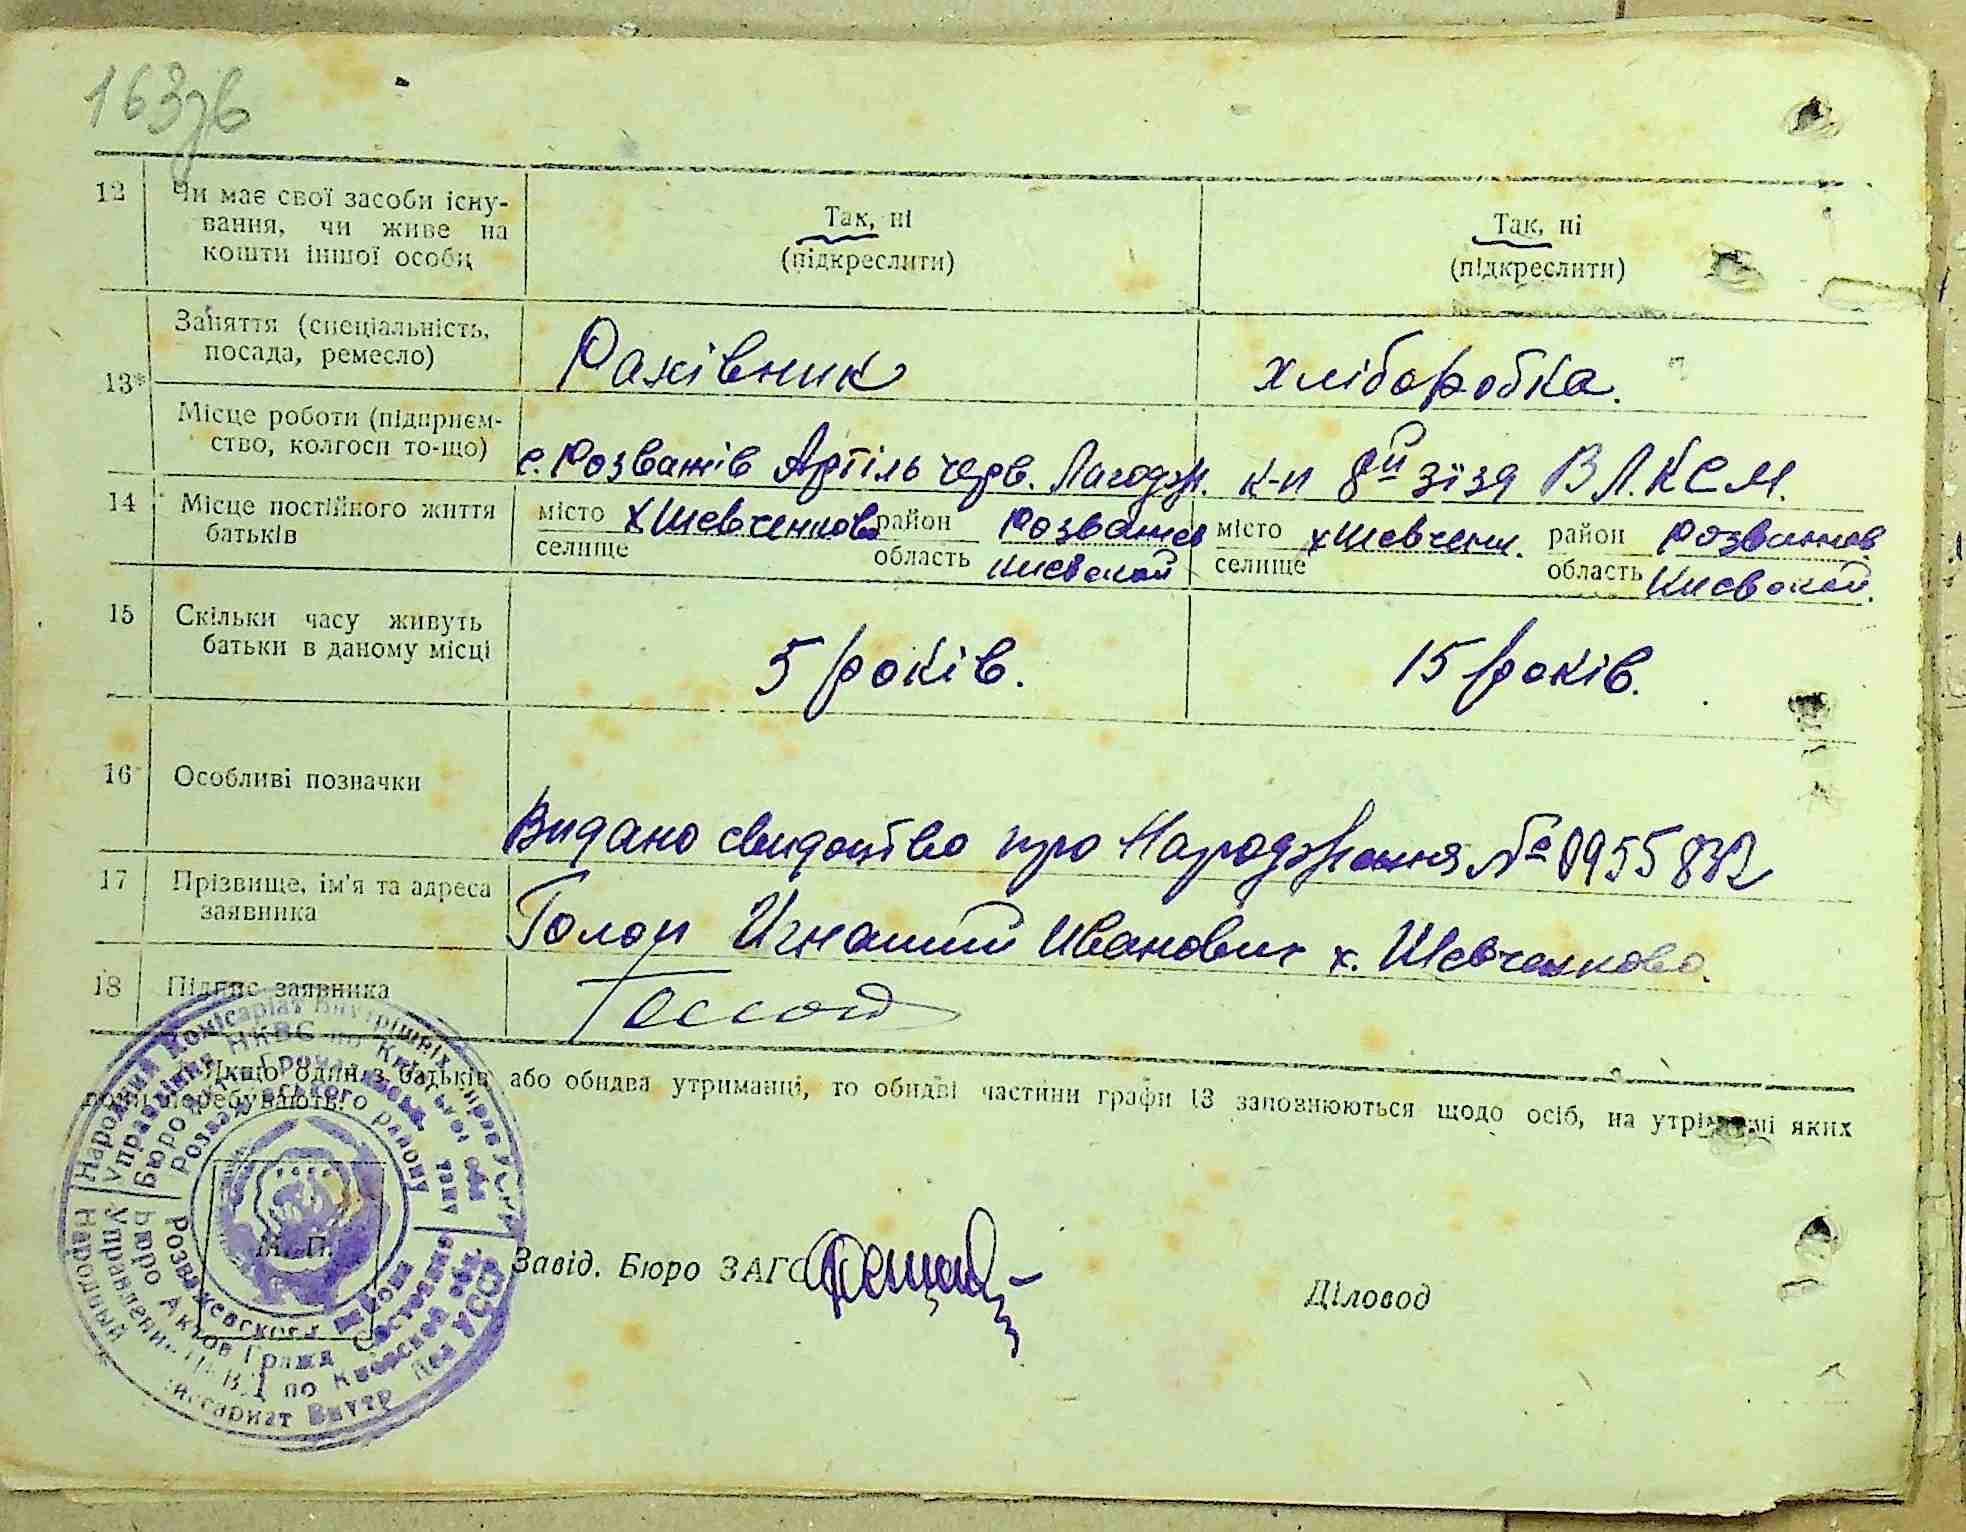 163зв
12 Чи має свої засоби існу-
вання, чи живе на
кошти іншої особи
Так, ні
(підкреслити)
Так, ні
(підкреслити)
13*
Заняття (спеціальність,
посада, ремесло)
Рахівник
хліборобка.
Місце роботи (підприєм-
ство, колгосп то-що)
с. Розважів Артіль черв.
к-п 8й зїзд ВЛКСМ.
14 Місце постійного життя
батьків
місто х Шевченково район Розважев
селище область Києвской
місто х Шевченк. район Розважев
селище область Києвской.
15 Скільки часу живуть
батьки в даному місці
5 років.
15 років.
16 Особливі позначки
Видано свидоцтво про Народження № 0955832
17 Прізвище, ім'я та адреса
заявника
Игнатий Иванович х. Шевченково.
18 Підпис заявника
Якщо один з батьків або обидва утриманці, то обидві частини графи 13 заповнюються щодо осіб, на утріманні яких
вони перебувають.
Народний Комісаріат Внутрішніх Справ УСРР
Управління НКВС по Київській обл
Бюро Актів Громадянськ. стану
Розважівського району
Народный Комиссариат Внутр Дел УССР
Управление НКВД по Киевской обл
Бюро Актов Гражд Состояния
Розважевского
М. П.
Завід. Бюро ЗАГС
Діловод